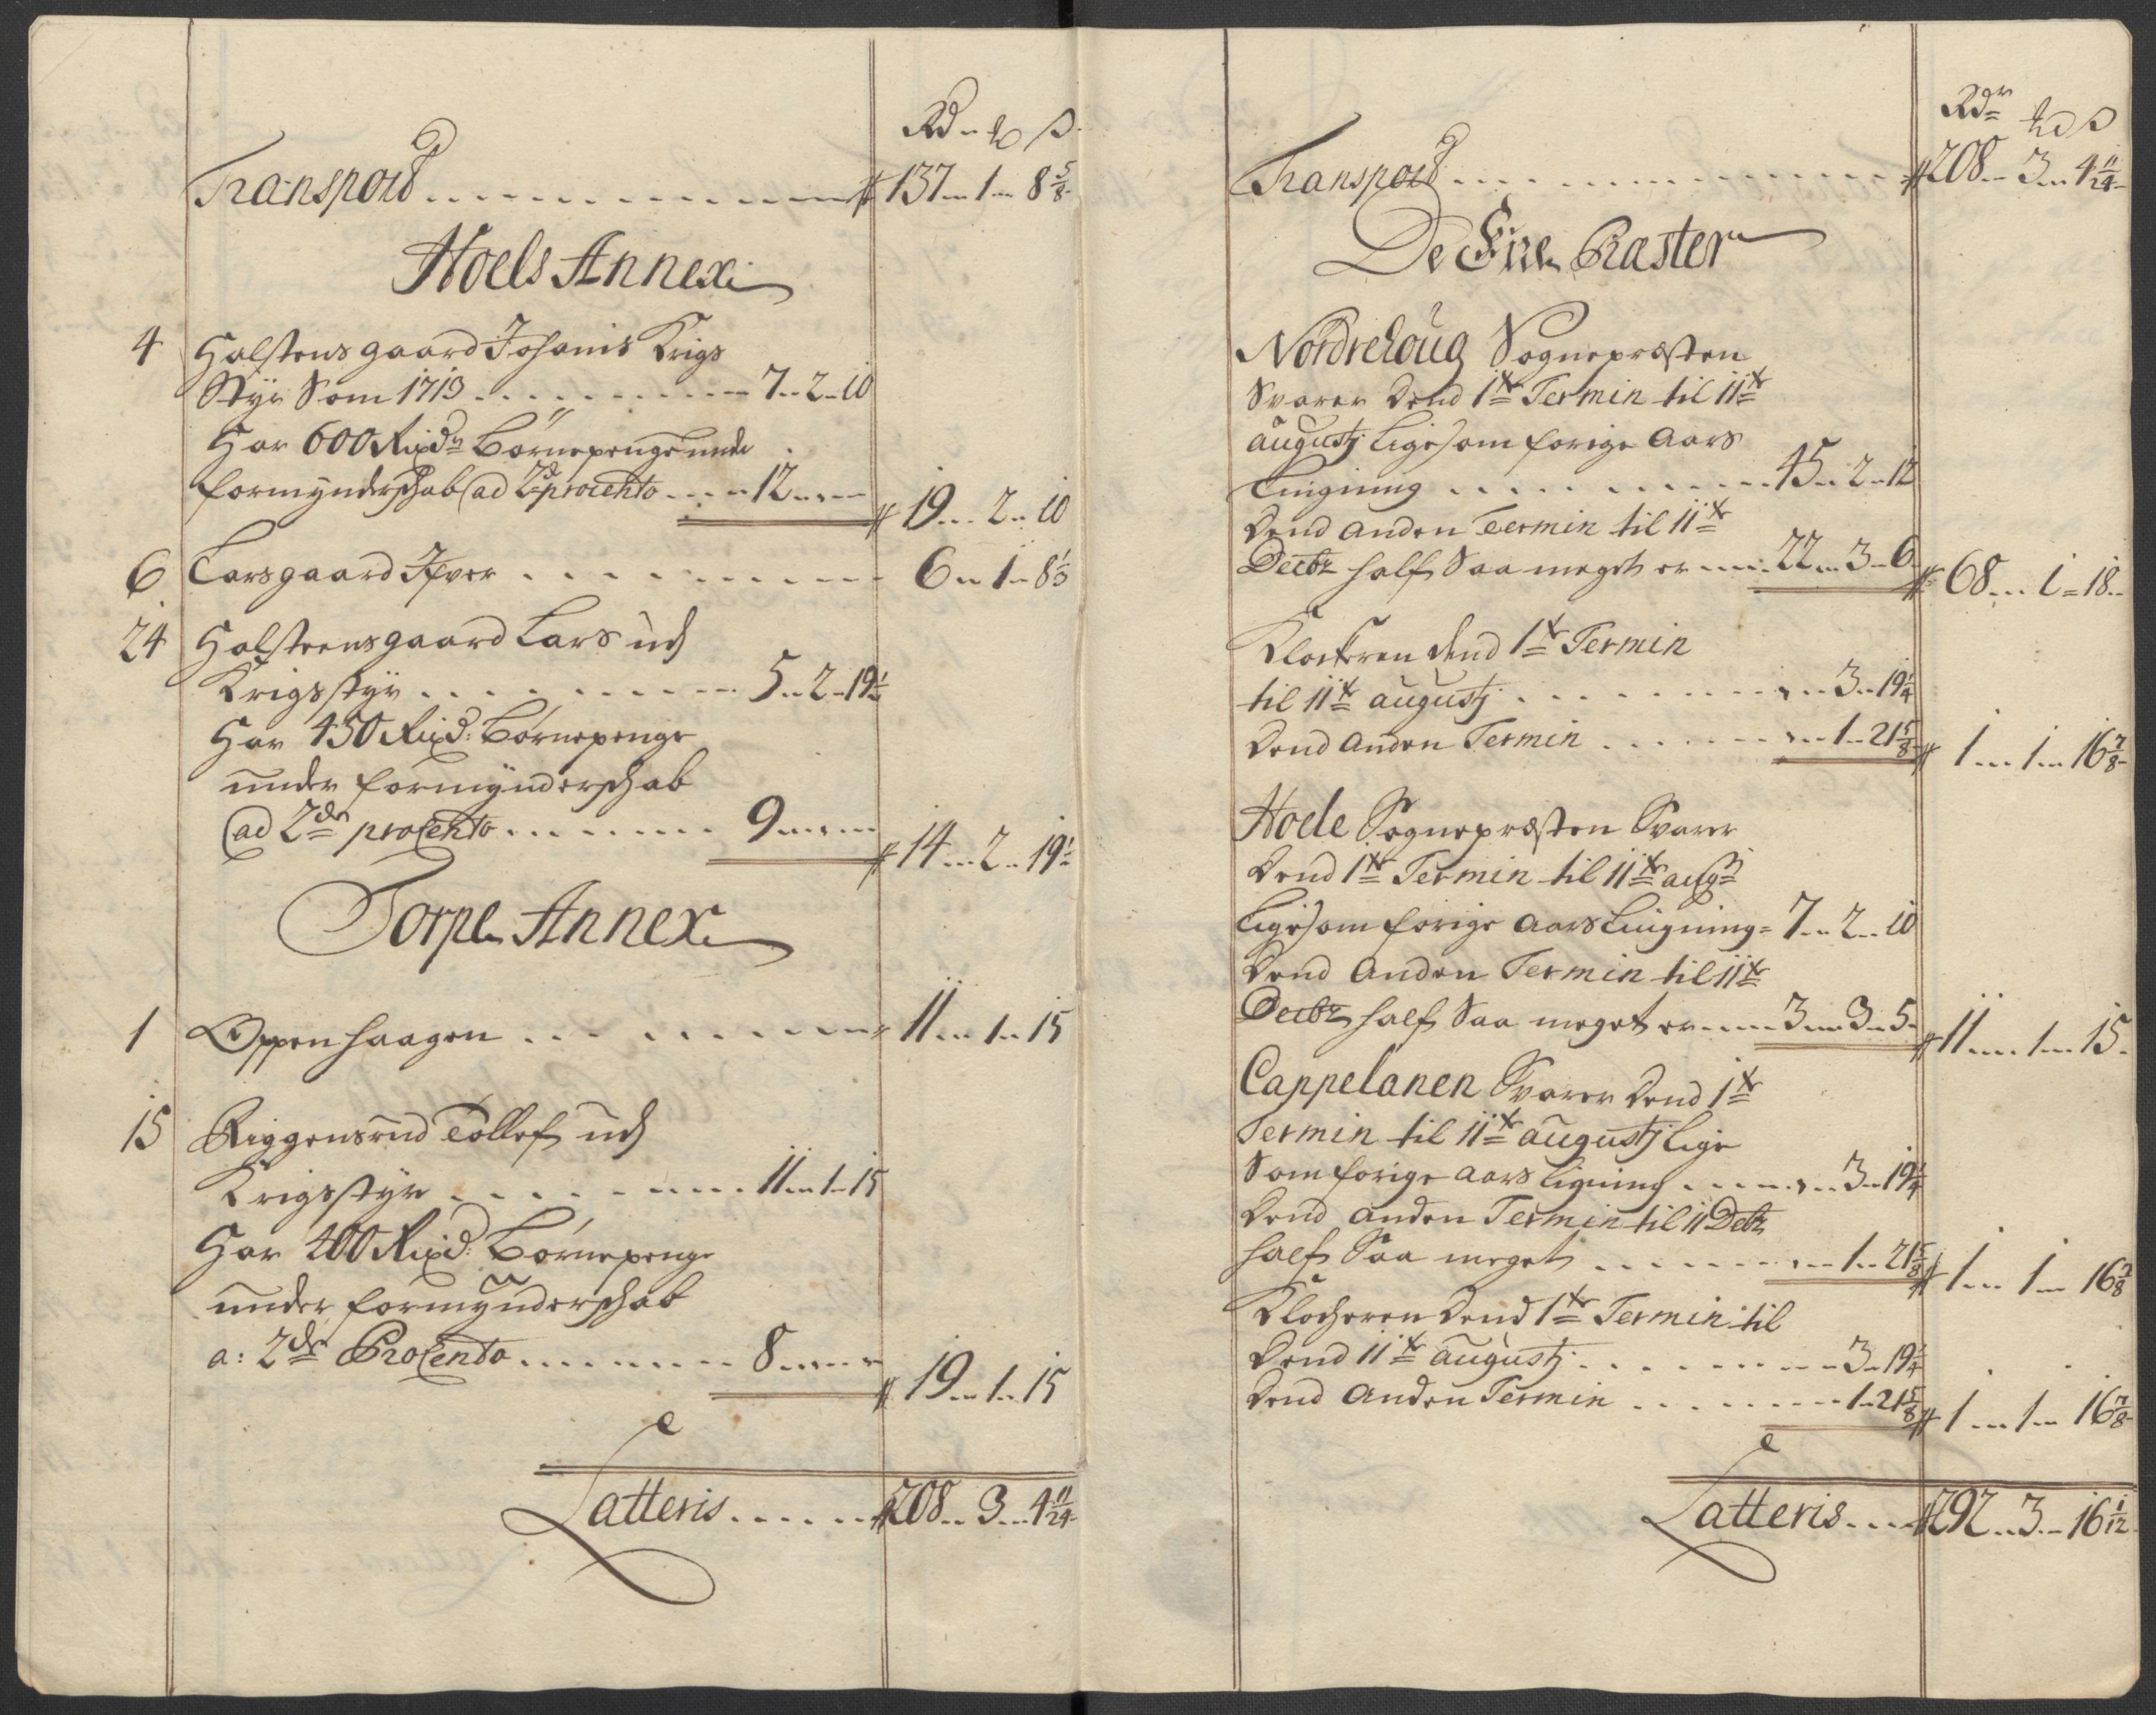 Rd - ℔ ß
Transport . . . . . . . . . . . 137 - 1 - 8 5/8
Hoels Annex
4 Halstensgaard Johanis Krigs
Styr Som 1713 . . . . . . . . . 7 - 2 - 10
Har 600 Rixdr Börnepenge unde
formynderschab (ad 2d procento . . . . 12 - - -
19 - 2 - 10
6 Larsgaard Ifver . . . . . . . . . 6 - 1 - 8 1/3
24 Halsteensgaard Lars ud
Krigsstyr . . . . . . . . . 5 - 2 - 19 1/2
Har 450 Rixd: Börnepenge
under formynderschab
(ad 2dr procento . . . . . . . 9 - - -
14 - 2 - 19 1/2
Torpe Annex
1 Oppenhaagen . . . . . . . . 11 - 1 - 15
15 Riggensrud Tollef ud
Krigsstyr . . . . . . . . . 11 - 1 - 15
Har 400 Rixd: Börnepenge
under formynderschab
a: 2dr Procento . . . . . . . . 8 - - -
19 - 1 - 15
Latteris . . . . . . 208 - 3 - 4 11/24
Rdr ℔ ß
Transport . . . . . . . . . . . 208 - 3 - 4 11/24
De Ene Præster
Nordrehoug Sognepræsten
Svarer Dend 1te Termin til 11te
augustj Ligesom forige Aars
Lingning . . . . . . . . . 45 - 2 - 12
Dend anden Termin til 11te
Decbr half Saa meget er . . . . 22 - 3 - 6
68 - 1 - 18
Klockeren dend 1te Termin
til 11te augustj . . . . . . . . 3 - 19 1/4
Dend Anden Termin . . . . . . 1 - 21 5/8
1 - 1 - 16 7/8
Hoele Sognepræsten Svarer
Dend 1te Termin til 11te augj
Ligesom forige Aars Lingning = 7 - 2 - 10
Dend Anden Termin til 11te
Decbr half Saa meget er . . . . 3 - 3 - 5
11 - 1 - 15
Cappelanen Svarer Dend 1te
Termin til 11te augustj Lige
Som forige Aars Ligning . . . . . 3 - 19 1/4
Dend anden Termin til 11 Decbr
half Saa meget . . . . . . . 1 - 21 5/8
1 - 1 - 16 7/8
Klocheren Dend 1te Termin til
Dend 11te augustj . . . . . . . 3 - 19 1/4
Dend Anden Termin . . . . . . . 1 - 21 5/8
1 - 1 - 16 7/8
Latteris . . . . 292 - 3 - 16 1/12